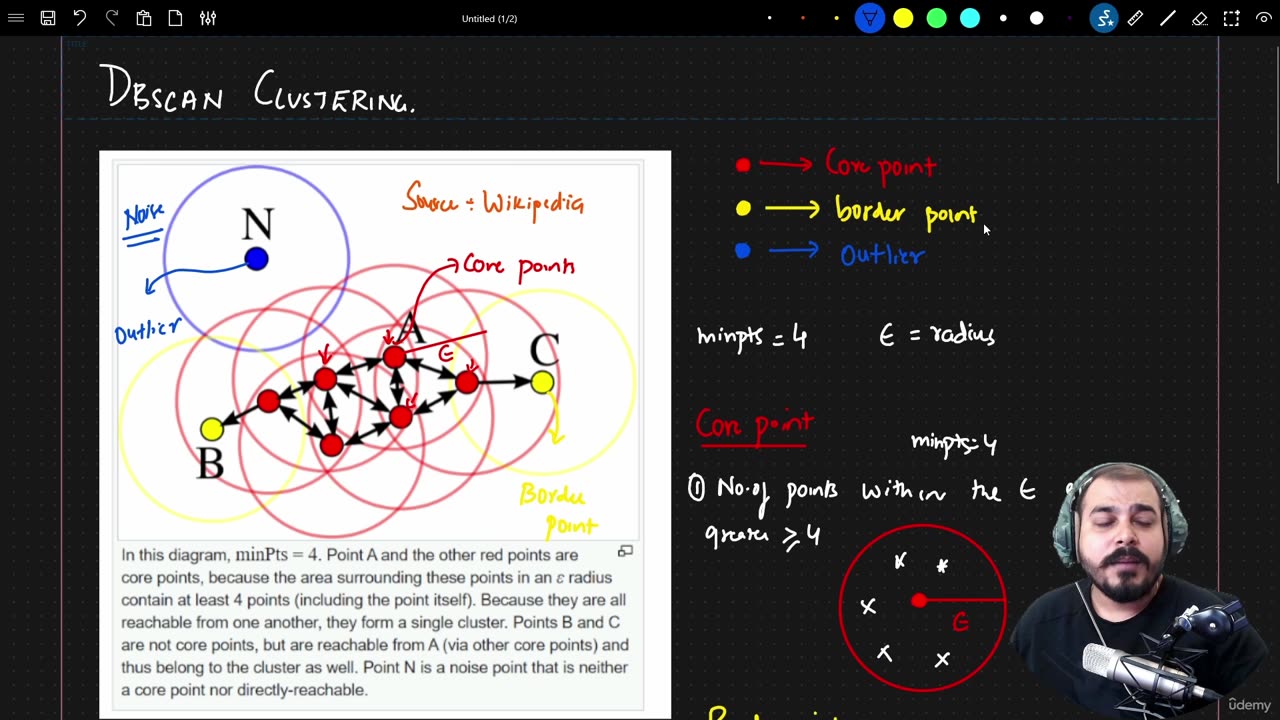 Untitled (1/2)
TITLE
DBSCAN CLUSTERING.
Noise
N
Source ÷ Wikipedia
Core points
Outlier
A
E
C
B
Border
point
In this diagram, minPts = 4. Point A and the other red points are
core points, because the area surrounding these points in an ε radius
contain at least 4 points (including the point itself). Because they are all
reachable from one another, they form a single cluster. Points B and C
are not core points, but are reachable from A (via other core points) and
thus belong to the cluster as well. Point N is a noise point that is neither
a core point nor directly-reachable.
Core point
border point
Outlier
minpts = 4 ϵ = radius
Core point
minpts=4
① No. of points within the ϵ
greater ≥ 4
ϵ
ûdemy